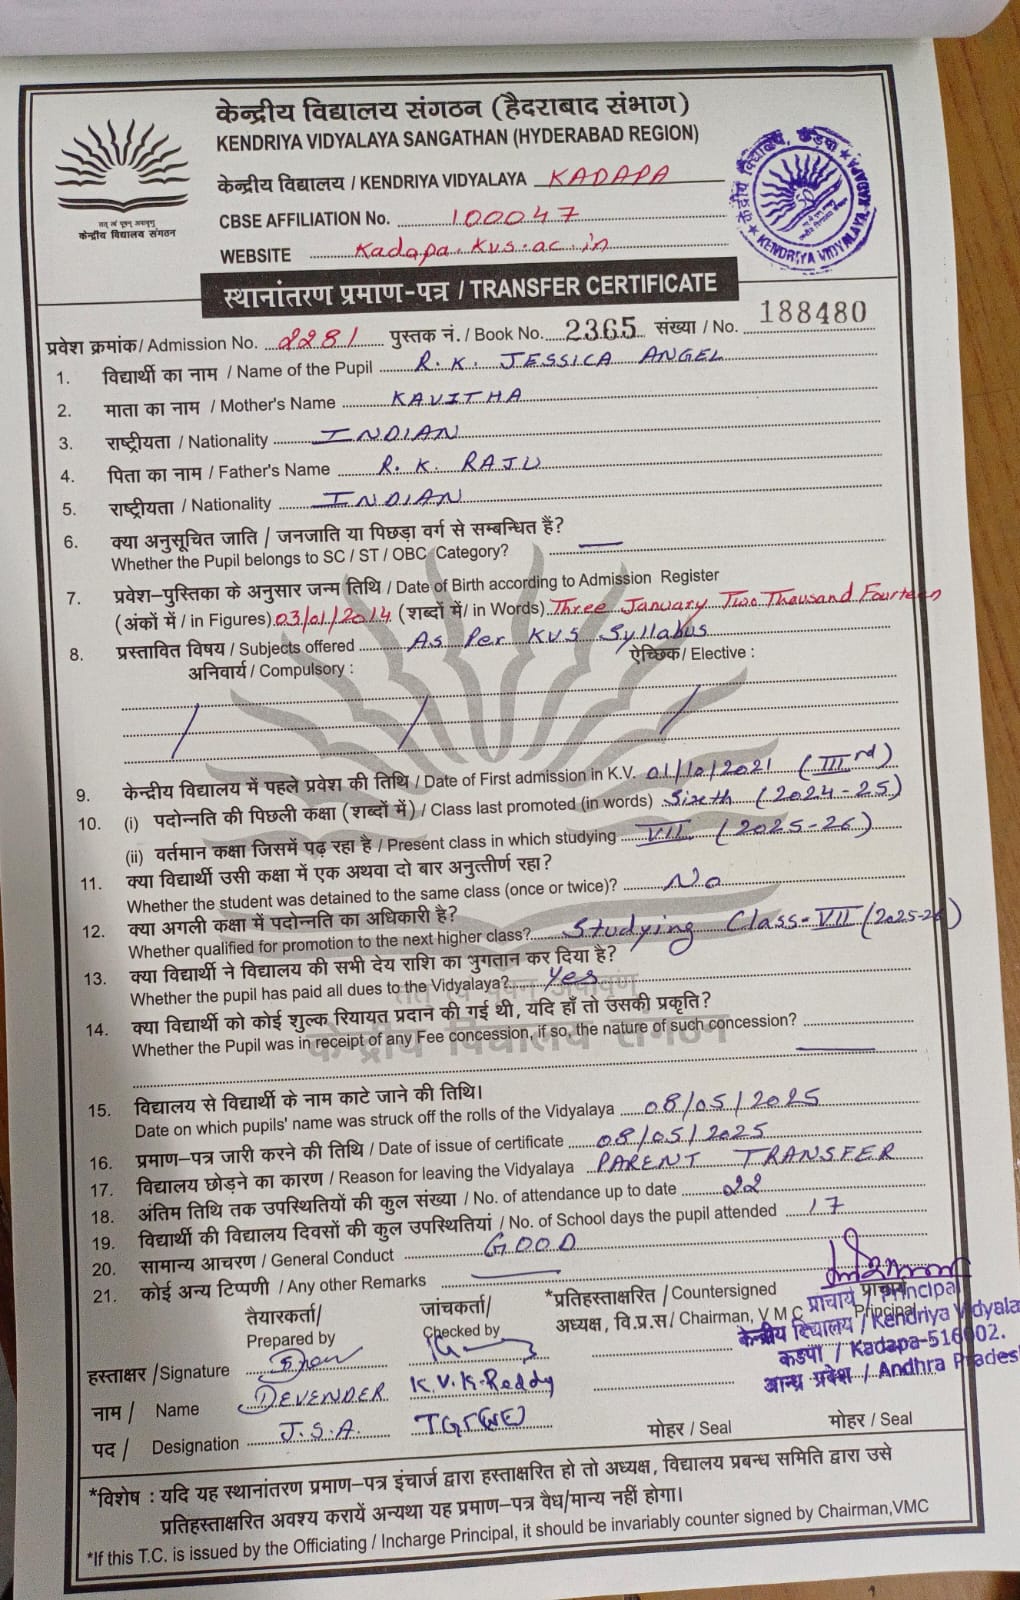 केन्द्रीय विद्यालय संगठन (हैदराबाद संभाग)
KENDRIYA VIDYALAYA SANGATHAN (HYDERABAD REGION)
केन्द्रीय विद्यालय / KENDRIYA VIDYALAYA KADAPA
CBSE AFFILIATION No. 100047
WEBSITE Kadapa.kvs.ac.in
केन्द्रीय विद्यालय संगठन
केन्द्रीय विद्यालय, कडपा
KENDRIYA VIDYALAYA, KADAPA
स्थानांतरण प्रमाण-पत्र / TRANSFER CERTIFICATE
प्रवेश क्रमांक/ Admission No. 2281 पुस्तक नं. / Book No. 2365 संख्या / No. 188480
1. विद्यार्थी का नाम / Name of the Pupil R. K. JESSICA ANGEL
2. माता का नाम / Mother's Name KAVITHA
3. राष्ट्रीयता / Nationality INDIAN
4. पिता का नाम / Father's Name R. K. RAJU
5. राष्ट्रीयता / Nationality INDIAN
6. क्या अनुसूचित जाति / जनजाति या पिछड़ा वर्ग से सम्बन्धित हैं?
Whether the Pupil belongs to SC / ST / OBC Category? —
7. प्रवेश-पुस्तिका के अनुसार जन्म तिथि / Date of Birth according to Admission Register
(अंकों में / in Figures) 03/01/2014 (शब्दों में/ in Words) Three January Two Thousand Fourteen
8. प्रस्तावित विषय / Subjects offered As Per KVS Syllabus
अनिवार्य / Compulsory : ऐच्छिक/ Elective :
9. केन्द्रीय विद्यालय में पहले प्रवेश की तिथि / Date of First admission in K.V. 01/10/2021 (IIIrd)
10. (i) पदोन्नति की पिछली कक्षा (शब्दों में) / Class last promoted (in words) Sixth (2024-25)
(ii) वर्तमान कक्षा जिसमें पढ़ रहा है / Present class in which studying VII (2025-26)
11. क्या विद्यार्थी उसी कक्षा में एक अथवा दो बार अनुत्तीर्ण रहा?
Whether the student was detained to the same class (once or twice)? No
12. क्या अगली कक्षा में पदोन्नति का अधिकारी है?
Whether qualified for promotion to the next higher class? Studying Class-VII (2025-26)
13. क्या विद्यार्थी ने विद्यालय की सभी देय राशि का भुगतान कर दिया है?
Whether the pupil has paid all dues to the Vidyalaya? Yes
14. क्या विद्यार्थी को कोई शुल्क रियायत प्रदान की गई थी, यदि हाँ तो उसकी प्रकृति?
Whether the Pupil was in receipt of any Fee concession, if so, the nature of such concession? —
केन्द्रीय विद्यालय संगठन
15. विद्यालय से विद्यार्थी के नाम काटे जाने की तिथि।
Date on which pupils' name was struck off the rolls of the Vidyalaya 08/05/2025
16. प्रमाण-पत्र जारी करने की तिथि / Date of issue of certificate 08/05/2025
17. विद्यालय छोड़ने का कारण / Reason for leaving the Vidyalaya PARENT TRANSFER
18. अंतिम तिथि तक उपस्थितियों की कुल संख्या / No. of attendance up to date 22
19. विद्यार्थी की विद्यालय दिवसों की कुल उपस्थितियां / No. of School days the pupil attended 17
20. सामान्य आचरण / General Conduct GOOD
21. कोई अन्य टिप्पणी / Any other Remarks —
तैयारकर्ता/ जांचकर्ता/ *प्रतिहस्ताक्षरित / Countersigned प्राचार्य
Prepared by Checked by अध्यक्ष, वि.प्र.स/ Chairman, V M C Principal
प्राचार्य / Principal
केन्द्रीय विद्यालय / Kendriya Vidyala
कडपा / Kadapa-516002.
आन्ध्र प्रदेश / Andhra Prades
हस्ताक्षर /Signature
नाम / Name DEVENDER K.V.K.Reddy
पद / Designation J.S.A. TGT(WE) मोहर / Seal मोहर / Seal
*विशेष : यदि यह स्थानांतरण प्रमाण-पत्र इंचार्ज द्वारा हस्ताक्षरित हो तो अध्यक्ष, विद्यालय प्रबन्ध समिति द्वारा उसे
प्रतिहस्ताक्षरित अवश्य करायें अन्यथा यह प्रमाण-पत्र वैध/मान्य नहीं होगा।
*If this T.C. is issued by the Officiating / Incharge Principal, it should be invariably counter signed by Chairman,VMC